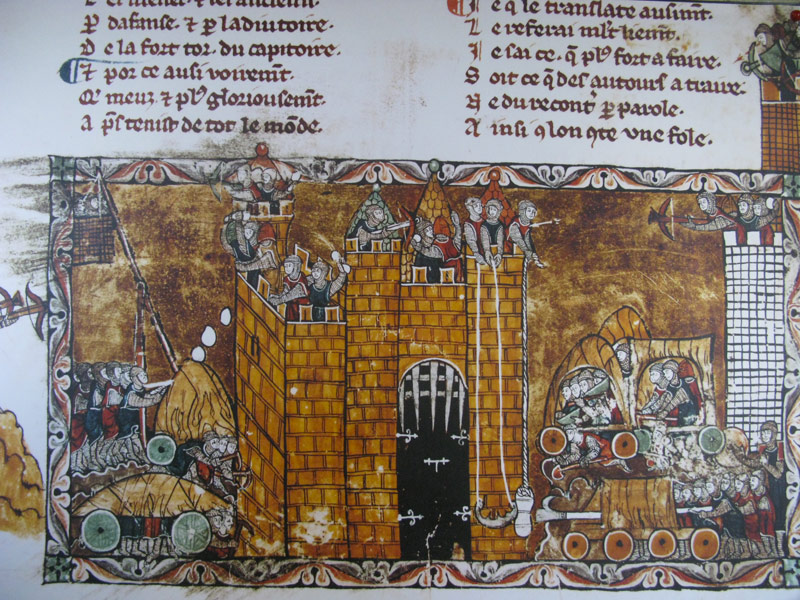 P dafense. ⁊ p ladiutoire.
D e la fort tor. du capitoire.
⁊ por ce ausi voirem̃t.
Q̃ meuz ⁊ pl' gloriousem̃t.
A p̃s tenist de tot le mõde.
I e q le translate ausim̃t.
L e referai ml't
I e sai ce. q̃ pl' fort a faire.
S oit ce q̃ des autours a traire.
Q e du recont' p parole.
A insi q lon ꝯte vne fole.